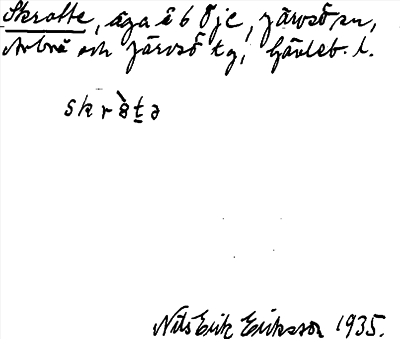 Skratte, äga å 6 Öje, Järvsö sn,
Arbrå och Järvsö tg, Gävleb. l.
skr
Nils Erik Eriksson 1935.